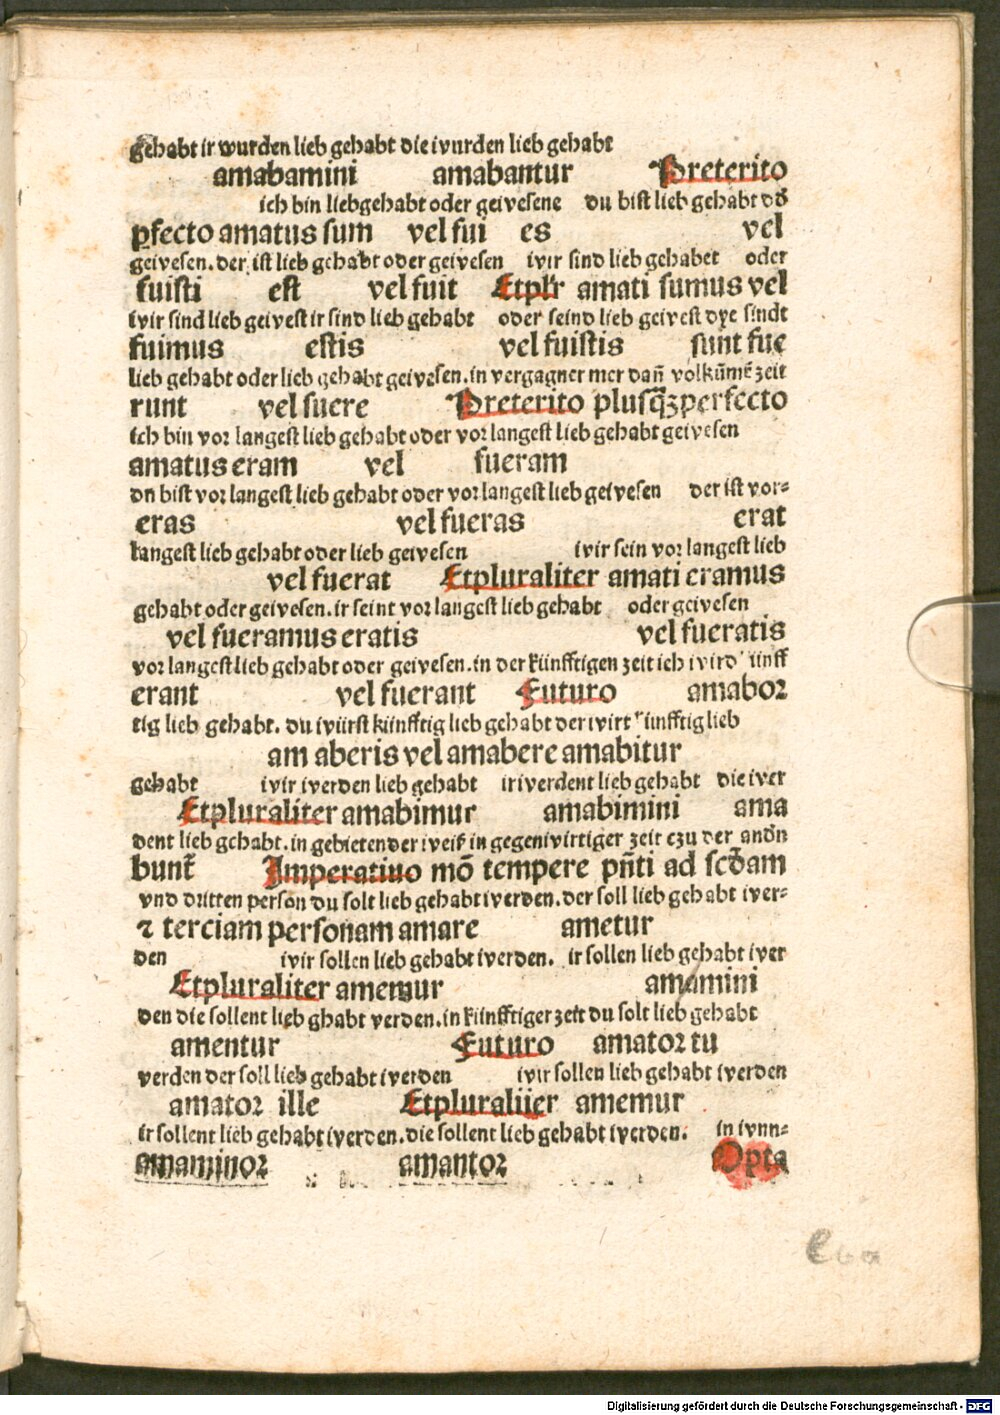 gehabt ir wurden lieb gehabt die ivurden lieb gehabt
amabamini amabantur Preterito
ich bin liebgehabt oder geivesene du bist lieb gehabt od̕
ꝑfecto amatus sum vel fui es vel
geivesen. der ist lieb gehabt oder geivesen ivir sind lieb gehabet oder
fuisti est vel fuit Etplr̄ amati sumus vel
ivir sind lieb geivest ir sind lieb gehabt oder seind lieb geivest dye sindt
fuimus estis vel fuistis sunt fue
lieb gehabt oder lieb gehabt geivesen. in vergagner mer dañ volkūmē zeit
runt vel fuere Preterito plusq̃ꝫperfecto
ich bin vor langest lieb gehabt oder vor langest lieb gehabt geivesen
amatus eram vel fueram
dn bist vor langest lieb gehabt oder vor langest lieb geivesen der ist vor⸗
eras vel fueras erat
langest lieb gehabt oder lieb geivesen ivir sein vor langest lieb
vel fuerat Etpluraliter amati eramus
gehabt oder geivesen. ir seint vor langest lieb gehabt oder geivesen
vel fueramus eratis vel fueratis
vor langest lieb gehabt oder geivesen. in der künfftigen zeit ich ivird ünff
erant vel fuerant Futuro amabor
tig lieb gehabt. du ivürst künfftig lieb gehabt der ivirt künfftig lieb
am aberis vel amabere amabitur
gehabt ivir iverden lieb gehabt iriverdent lieb gehabt die iver
Etpluraliter amabimur amabimini ama
dent lieb gehabt. in gebietender iveiß in gegenivirtiger zeit czu der andn̄
bunt̃ Imperatiuo mō tempere pñti ad scd̄am
vnd dritten person du solt lieb gehabt iverden. der soll lieb gehabt iver⸗
⁊ terciam personam amare ametur
den ivir sollen lieb gehabt iverden. ir sollen lieb gehabt iver
Etpluraliter amemur amamini
den die sollent lieb ghabt verden. in künfftiger zeit du solt lieb gehabt
amentur Futuro amator tu
verden der soll lieb gehabt iverden ivir sollen lieb gehabt iverden
amator ille Etpluraliier amemur
ir sollent lieb gehabt iverden. die sollent lieb gehabt iverden. in ivnn⸗
amaminor amantor Opta
Digitalisierung gefördert durch die Deutsche Forschungsgemeinschaft - DFG